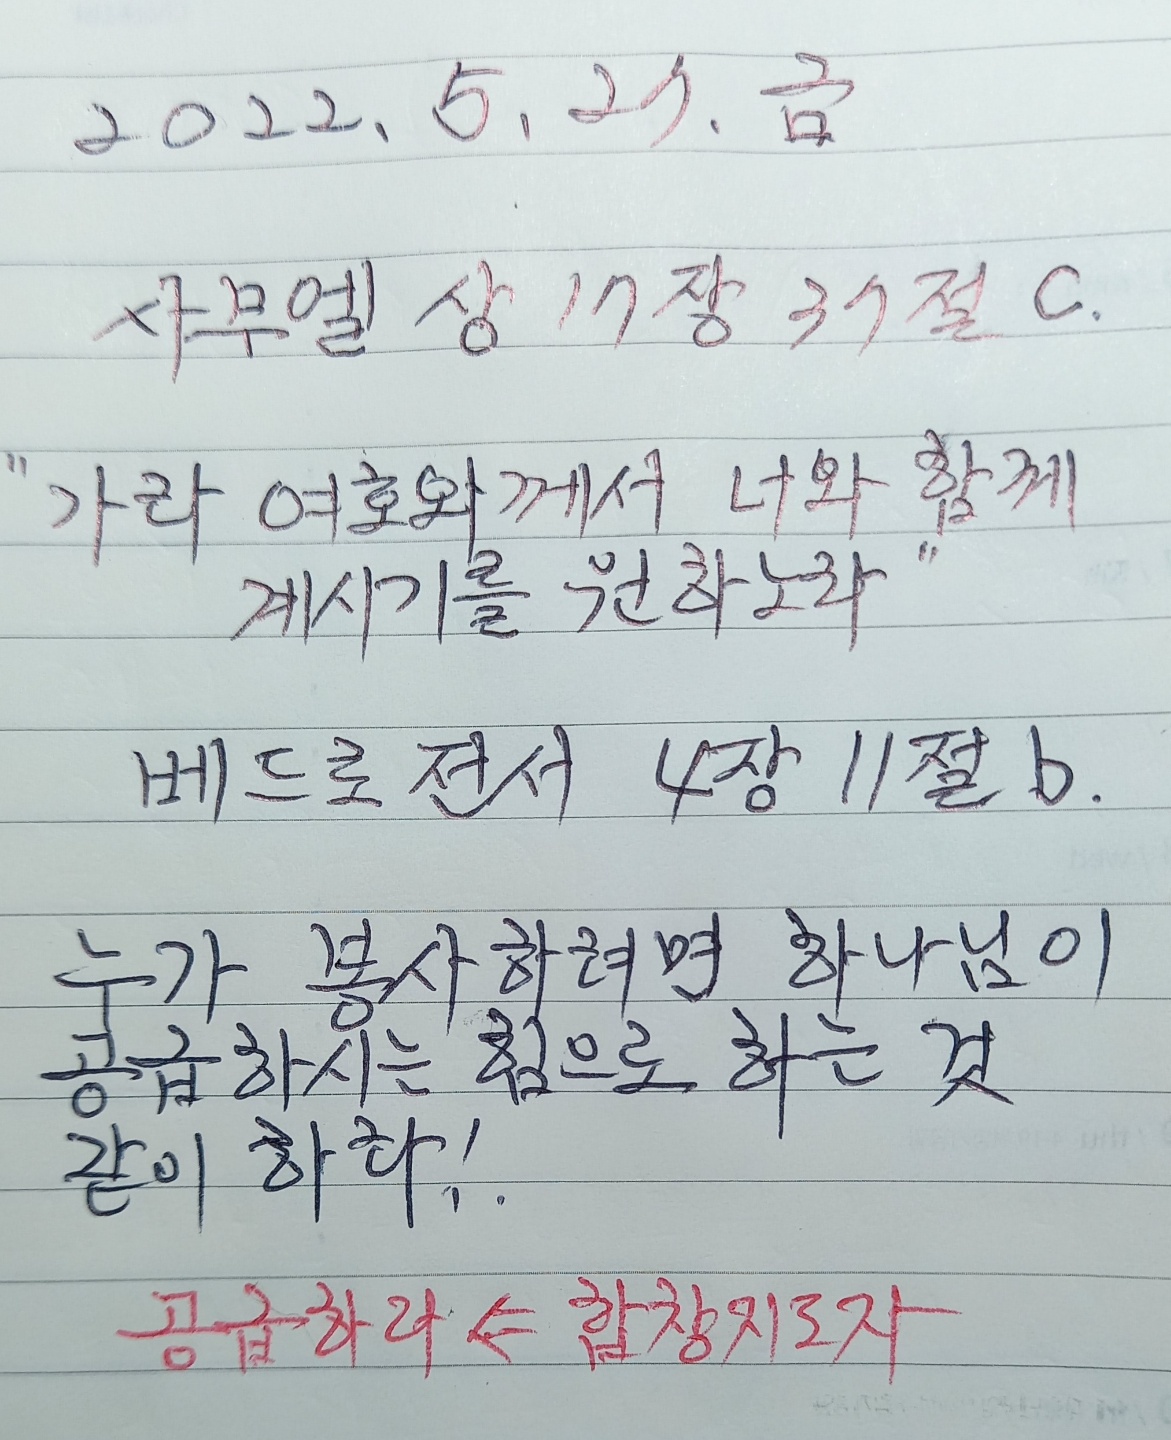 2022. 5. 27. 금
사무엘 상 17장 37절 C.
"가라 여호와께서 너와 함께
계시기를 원하노라"
베드로 전서 4장 11절 b.
누가 봉사하려면 하나님이
공급하시는 힘으로 하는 것
같이 하라!.
공급하라 ⇐ 합창지도자